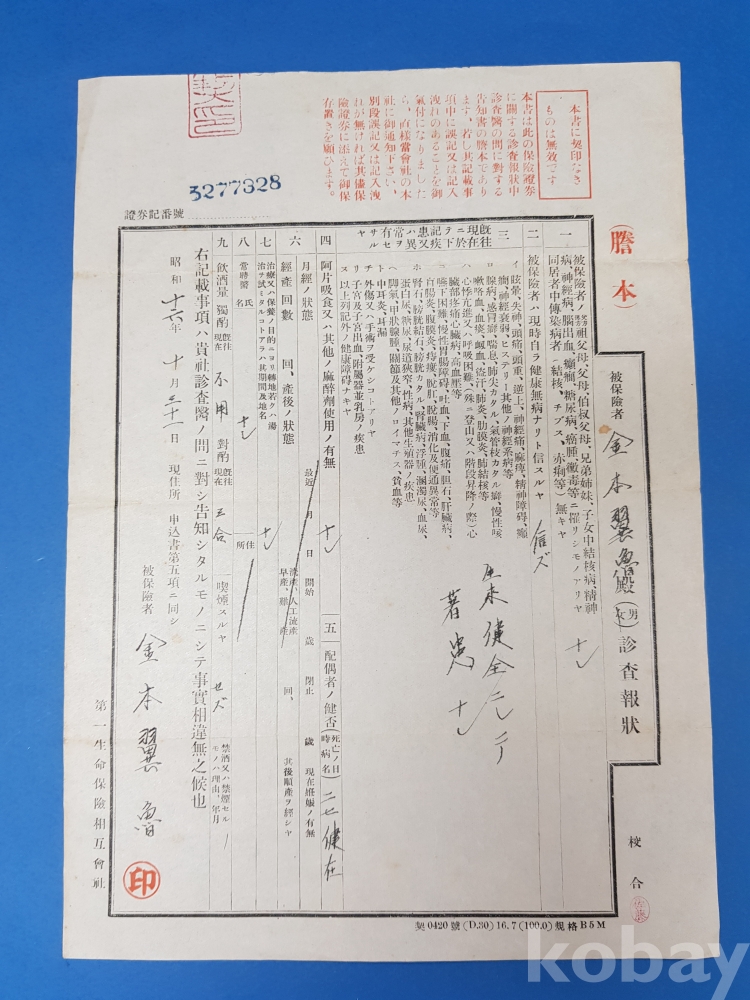 本書に契印なき
ものは無效です
本書は此の保險證券
に關する診査報狀中
診査醫の問に對する
告知書の謄本であり
ます、若し其記載事
項中に誤記又は記入
洩れのあることを御
氣付になりました
ら、直樣當會社の本
社に御通知下さい、
別段誤記又は記入洩
れが無ければ其儘保
險證券に添えて御保
存置きを願ひます。
3277328
證券記番號
(謄本)
被保險者 金本翼魯殿(男女)診査報狀
校合
一 被保險者ノ祖父母、父母、伯叔父母、兄弟姉妹、子女中結核病、精神
病、神經病、腦出血、癲癇、糖尿病、癌腫、黴毒等ニ罹リシモノアリヤ
同居者中傳染病者(結核、チブス、赤痢等)無キヤ ナシ
二 被保險者ハ現時自ラ健康無病ナリト信スルヤ 信ズ
三 既往現在ニ於テ下記疾患又ハ異常ヲ有セサルヤ
イ 眩暈、失神、頭痛、頭重、逆上、神經痛、麻痺、精神障碍、癲
癇、神經衰弱、ヒステリー其他ノ神經系病等
ロ 腺病、感冒癖、喘息、肺尖カタル、氣管枝カタル癖、慢性咳
嗽、咯血、血痰、衂血、盜汗、肺炎、肋膜炎、肺結核等
ハ 心悸亢進又ハ呼吸困難、(殊ニ登山又ハ階段昇降ノ際)心
臟部疼痛、心臟病、高血壓等
ニ 嚥下困難、慢性胃腸障碍、吐血、下血、腹痛、胆石、肝臟病、
盲腸炎、腹膜炎、痔瘻、脫肛、脫腸、消化及便通異常等
ホ 腎石、膀胱結石、膀胱カタル、腎臟病、浮腫、溷濁尿、血尿、
蛋白尿、糖尿、尿道狹窄、性病、其他生殖器ノ疾患
ヘ 脚氣、甲狀腺腫、關節及其他ノロイマチス、貧血等
ト 中耳炎、耳漏
チ 外傷又ハ手術ヲ受ケシコトアリヤ
リ 子宮及子宮出血、附屬器並乳房ノ疾患
ヌ 以上列記外ノ健康障碍ナキヤ
生來健全ニシテ
著患ナシ
四 阿片吸食又ハ其他ノ麻醉劑使用ノ有無 ナシ
五 配偶者ノ健否(死亡ノ日時病名) 二七健在
六 月經ノ狀態 最近 月 日 開始 歲 閉止 歲 現在姙娠ノ有無
經產回數 回、產後ノ狀態 流產、人工流產早產、難產 回、 其後順產ヲ經シヤ
七 治療又ハ保養ノ目的ニヨリ轉地若クハ湯
治ヲ試ミタルコトアラハ其期間及地名 ナシ
八 常時醫 氏名 ナシ 住所
九 飲酒量 獨酌 既往現在 不用 對酌 既往現在 三合 喫煙スルヤ セズ 禁酒又ハ禁煙セル
モノハ理由、年月
右記載事項ハ貴社診査醫ノ問ニ對シ告知シタルモノニシテ事實相違無之候也
昭和十六年十月三十一日 現住所 申込書第五項ニ同シ
被保險者 金本翼魯 印
第一生命保險相互會社
契 0420 號 (D.30) 16.7 (100.0) 規格 B5M
kobay